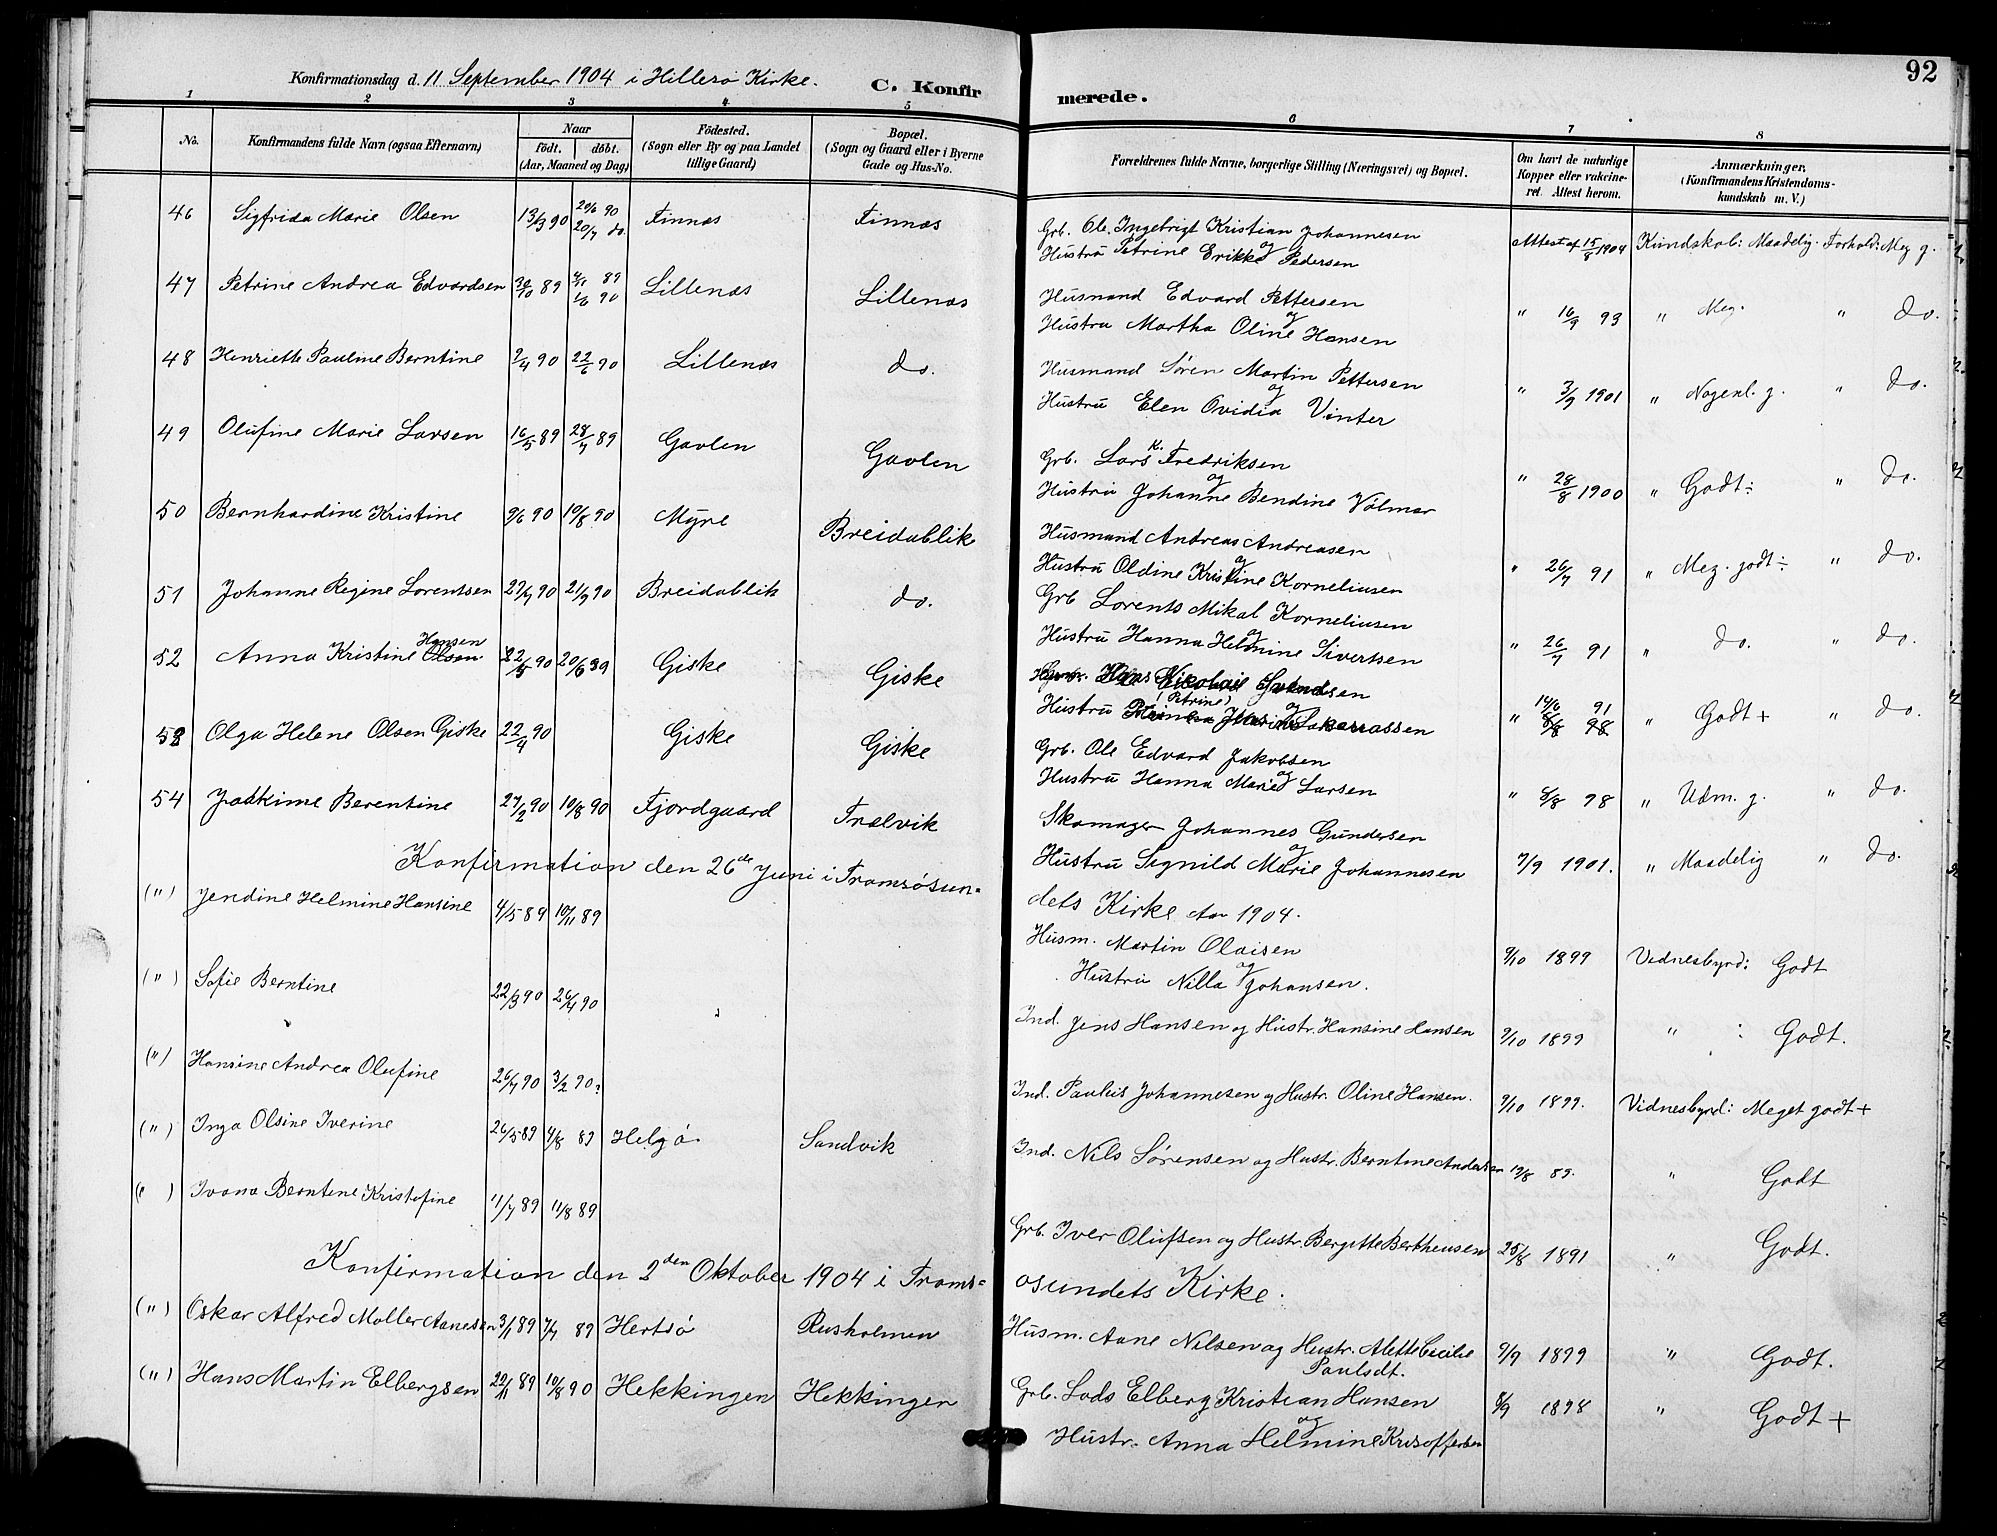 92
Konfirmationsdag d. 11 September 1904 i Hillesø Kirke. C. Konfirmerede.
1 2 3 4 5 6 7 8
No. Konfirmandens fulde Navn (ogsaa Efternavn) Naar født. døbt. (Aar, Maaned og Dag) Födested. (Sogn eller By og paa Landet tillige Gaard) Bopæl. (Sogn og Gaard eller i Byerne Gade og Hus-No. Forældrenes fulde Navne, borgerlige Stilling (Næringsvei) og Bopæl. Om havt de naturlige Kopper eller vakcineret. Attest herom. Anmærkninger, (Konfirmandens Kristendomskundskab m. V.)
46 Sigfrida Marie Olsen 13/3 90 20/6 90 20/7 do. Finnæs Finnæs Grb. Ole Ingebrigt Kristian Johannesen og Hustru Petrine Erikka Pedersen Attest af 15/8 1904 Kundskab: Maadelig. Forhold: Meg g.
47 Petrine Andrea Edvardsen 30/10 89 4/11 89 1/6 90 Lillenæs Lillenæs Husmand Edvard Pettersen og Hustru Martha Oline Hansen " 16/9 93 " Meg. " do.
48 Henriette Pauline Berntine 9/4 90 22/6 90 Lillenæs do. Husmand Søren Martin Pettersen og Hustru Elen Ovidia Vinter " 3/9 1901 " Nogenl. g. " do.
49 Olufine Marie Larsen 16/5 89 28/7 89 Gavlen Gavlen Grb. Lars K. Fredriksen og Hustru Johanne Bendine Volmar " 28/8 1900 " Godt ÷ " do.
50 Bernhardine Kristine 9/6 90 10/8 90 Myre Breidablik Husmand Andreas Andreasen og Hustru Oldine Kristine Korneliusen " 26/7 91 " Meg. godt ÷ " do.
51 Johanne Regine Lorentsen 27/7 90 21/9 90 Breidablik do. Grb Lorents Mikal Korneliusen og Hustru Hanna Helmine Sivertsen " 26/7 91 " do. " do.
52 Anna Kristine Olsen Hansen 22/5 90 20/6 89 Giske Giske Hans Nikolai Svendsen og Hustru (Petrine) " 14/6 91 6/8 98 " Godt + " do.
53 Olga Helene Olsen Giske 22/4 90 Giske Giske Grb. Ole Edvard Jakobsen og Hustru Hanna Marie Larsen " 6/8 98 " Udm. g. " do.
54 Joakime Berentine 27/2 90 10/8 90 Fjordgaard Trælvik Skomager Johannes Gundersen og Hustru Signild Marie Johannesen 7/9 1901. " Maadelig " do.
Konfirmation den 26de Juni i Tromsøsundets Kirke Aar 1904.
(") Jendine Helmine Hansine 4/5 89 10/11 89 Husm. Martin Olaisen og Hustru Nilla Johansen. 9/10 1899 Vidnesbyrd: Godt
(") Sofie Berntine 22/3 90 26/4 90 Ind. Jens Hansen og Hustr. Hansine Hansen 9/10 1899 " : Godt.
(") Hansine Andrea Olufine 26/7 90 3/2 90? Ind. Paulus Johannesen og Hustr. Oline Hansen. 9/10 1899. Vidnesbyrd: Meget godt +
(") Inga Olsine Iverine 26/5 89 4/8 89 Helgø Sandvik Ind. Nils Sørensen og Hustr. Berntine Andersen 19/8 89. " Godt
(") Ivana Berntine Kristofine 11/7 89 11/8 89 Grb. Iver Olufsen og Hustr. Bergitte Bertheusen 25/6 1891 " Godt.
Konfirmation den 2den Oktober 1904 i Tromsøsundets Kirke.
(") Oskar Alfred Møller Aanesen 3/1 89 7/7 89 Hertsø Rusholmen Husm. Aane Nilsen og Hustr. Alette Cecilie Paulsdt. 9/9 1899 " Godt.
(") Hans Martin Elbergsen 22/11 89 10/8 90 Hekkingen Hekkingen Grb. Lods Elberg Kristian Hansen og Hustr. Anna Helmine Kristoffersen 8/9 1898 " Godt +